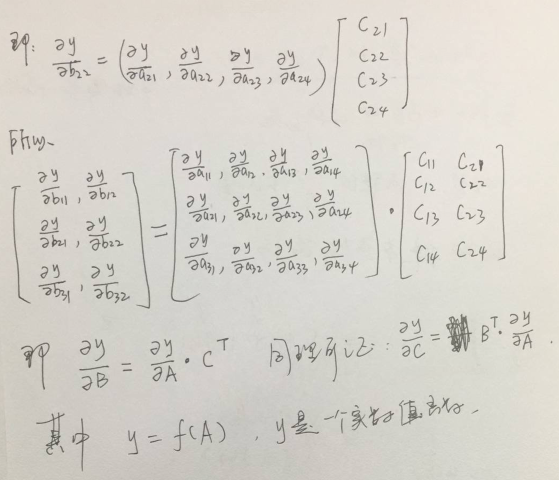 即: ∂y/∂b22 = (∂y/∂a21, ∂y/∂a22, ∂y/∂a23, ∂y/∂a24) [C21; C22; C23; C24]
所以、
[∂y/∂b11, ∂y/∂b12; ∂y/∂b21, ∂y/∂b22; ∂y/∂b31, ∂y/∂b32] = [∂y/∂a11, ∂y/∂a12, ∂y/∂a13, ∂y/∂a14; ∂y/∂a21, ∂y/∂a22, ∂y/∂a23, ∂y/∂a24; ∂y/∂a31, ∂y/∂a32, ∂y/∂a33, ∂y/∂a34] · [C11 C21; C12 C22; C13 C23; C14 C24]
即 ∂y/∂B = ∂y/∂A · C^T 同理可证: ∂y/∂C = B^T · ∂y/∂A.
其中 y = f(A) , y是一个实数值函数.